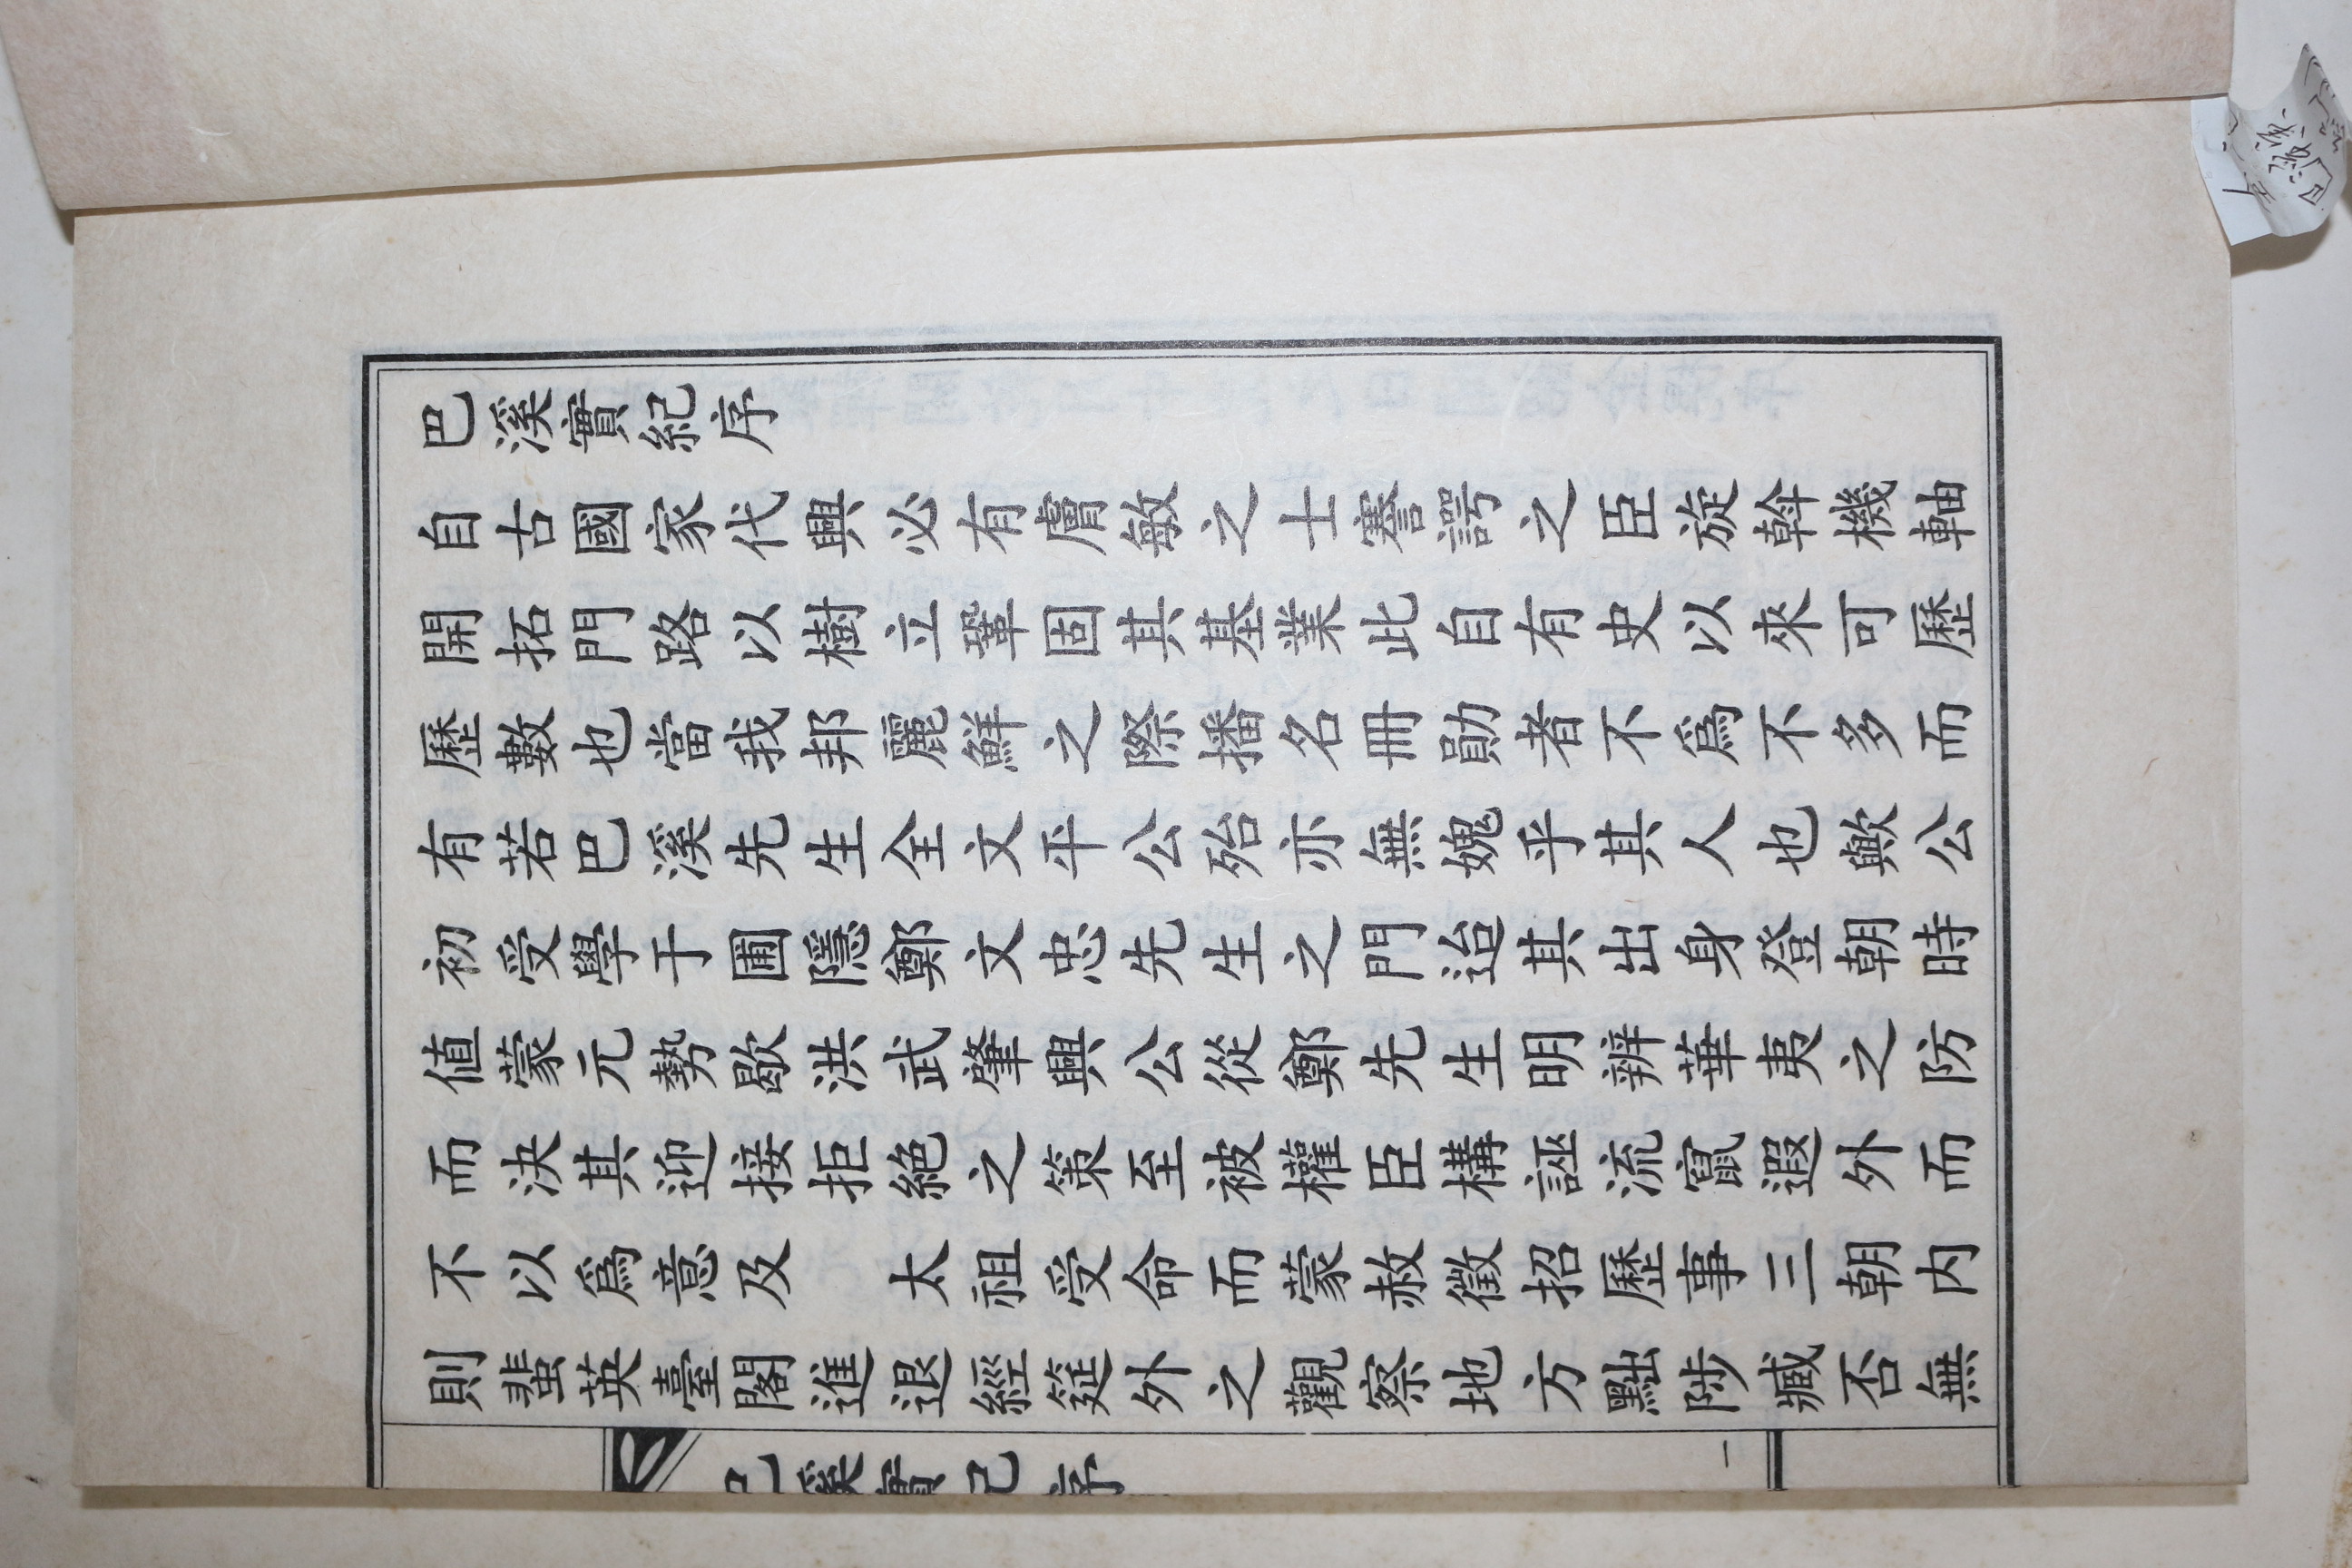 巴溪實紀序
自古國家代興必有膚敏之士謇諤之臣旋斡機軸
開拓門路以樹立鞏固其基業此自有史以來可歷
歷數也當我邦麗鮮之際播名冊勛者不爲不多而
有若巴溪先生全文平公殆亦無媿乎其人也歟公
初受學于圃隱鄭文忠先生之門迨其出身登朝時
値蒙元勢歇洪武肇興公從鄭先生明辨華夷之防
而決其迎接拒絶之策至被權臣構誣流竄遐外而
不以爲意及　太祖受命而蒙赦徵招歷事三朝内
則蜚英臺閣進退經筵外之觀察地方黜陟臧否無
巴溪實紀序
一